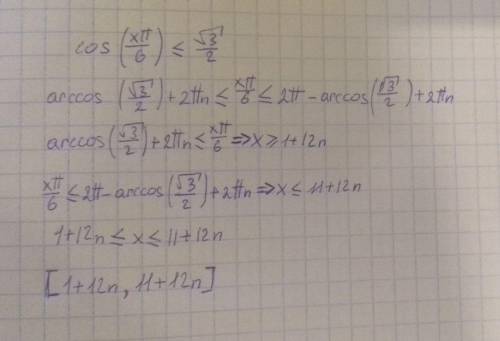 cos(xπ/6) ≤ √3/2
arccos(√3/2)+2πn ≤ xπ/6 ≤ 2π-arccos(√3/2)+2πn
arccos(√3/2)+2πn ≤ xπ/6 ⇒ x ≥ 1+12n
xπ/6 ≤ 2π-arccos(√3/2)+2πn ⇒ x ≤ 11+12n
1+12n ≤ x ≤ 11+12n
[1+12n, 11+12n]